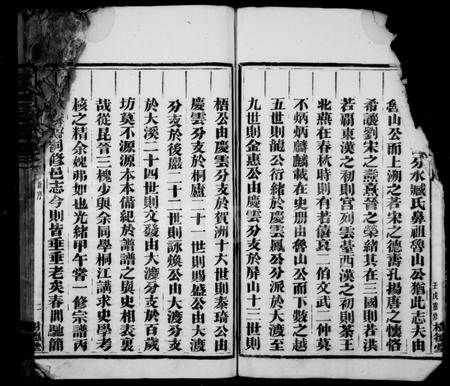 分水臧氏鼻祖魯山公猶此志夫由
魯山公而上溯之若宋之德壽孔揚唐之懷恪
希讓劉宋之燾熹晉之榮緒其在三國則若洪
若霸東漢之初則宮列雲臺西漢之初則荼王
北燕在春秋時則有若僖哀二伯文武二仲莫
不炳炳麟麟載在史册由魯山公而下數之越
五世則龍公衍緒於慶雲鳳公分派於大渡至
九世則金惠公由慶雲分支於屏山十三世則
梧公由慶雲分支於賀洲十六世則泰琦公由
慶雲分支於桐廬二十一世則賜盛公由大渡
分支於後巖二十二世則詠煥公由大渡分支
於大溪二十四世則文發由大渡分支於百歲
坊莫不源源本本備紀於譜譜之與史相表裏
哉從昆晉三槐少與余同學桐江講求史學考
核之精余媿弗如也光緒甲午嘗一修宗譜丙
祠修邑志今則皆垂垂老矣春間馳簡